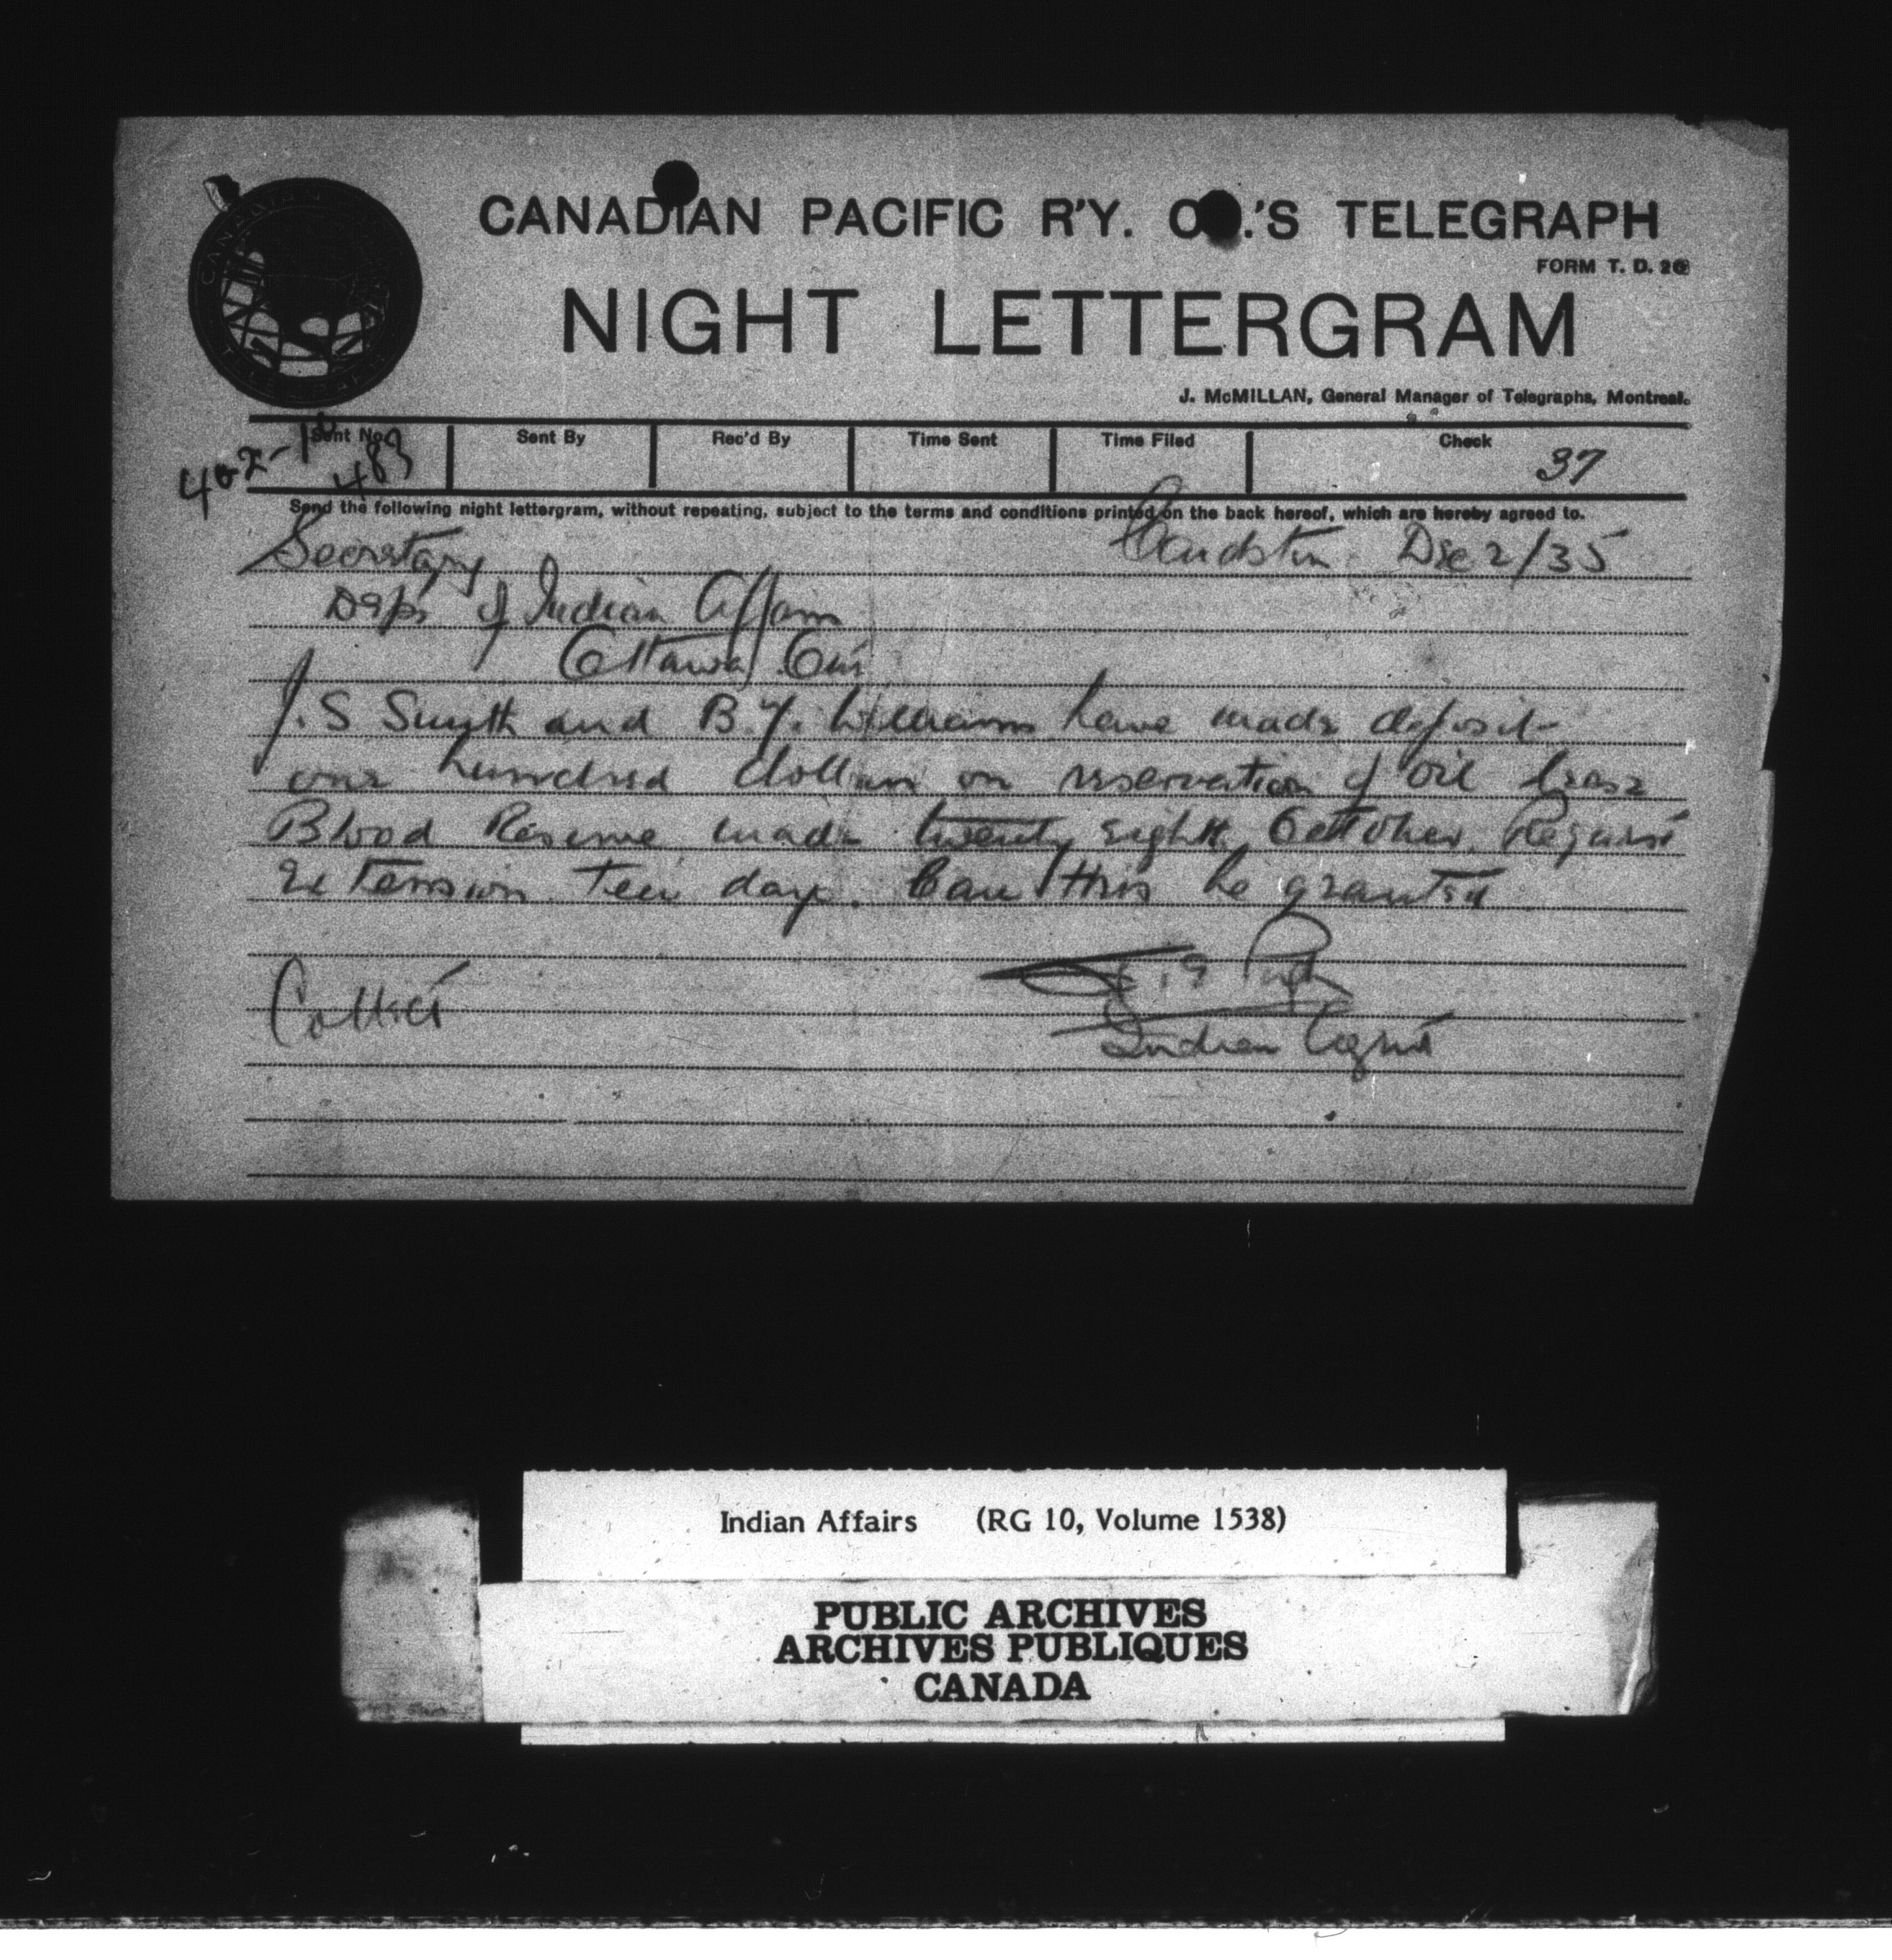 CANADIAN PACIFIC R'Y. CO.'S TELEGRAPH
FORM T. D. 2
NIGHT LETTERGRAM
J. McMILLAN, General Manager of Telegraphs, Montreal.
Sent No. Sent By Rec'd By Time Sent Time Filed Check
483 37
Send the following night lettergram, without repeating, subject to the terms and conditions printed on the back hereof, which are hereby agreed to.
Secretary Cardston Dec 2/35
Dept of Indian Affairs
Ottawa Ont
J. S Smyth and B. Y. Williams have made deposit
one hundred dollars on reservation of oil lease
Blood Reserve made twenty eighth October. Request
Extension ten days. Can this be granted
J. E. Pugh
Collect
Indian Agent
Indian Affairs (RG 10, Volume 1538)
PUBLIC ARCHIVES
ARCHIVES PUBLIQUES
CANADA